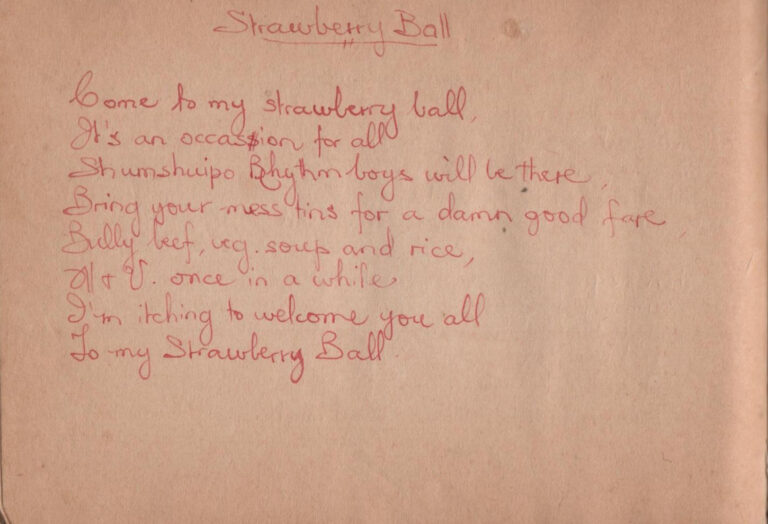 Strawberry Ball
Come to my strawberry ball,
It's an occassion for all
Shumshuipo Rhythm boys will be there,
Bring your mess tins for a damn good fare,
Bully beef, veg. soup and rice,
M & V. once in a while
I'm itching to welcome you all
To my Strawberry Ball.